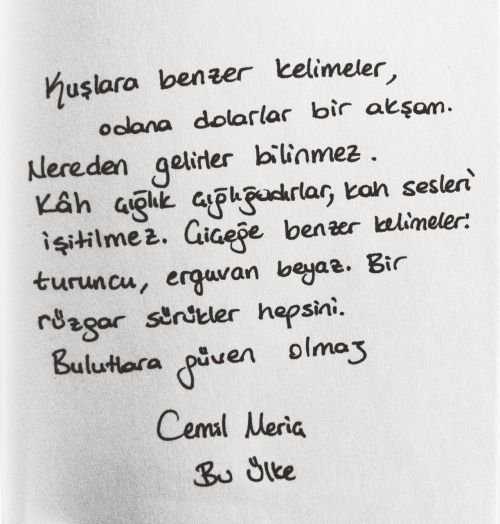 Kuşlara benzer kelimeler,
odana dolarlar bir akşam.
Nereden gelirler bilinmez.
Kâh çığlık çığlığadırlar, kah sesleri
işitilmez. Çiçeğe benzer kelimeler:
turuncu, erguvan beyaz. Bir
rüzgar sürükler hepsini.
Bulutlara güven olmaz
Cemil Meriç
Bu Ülke